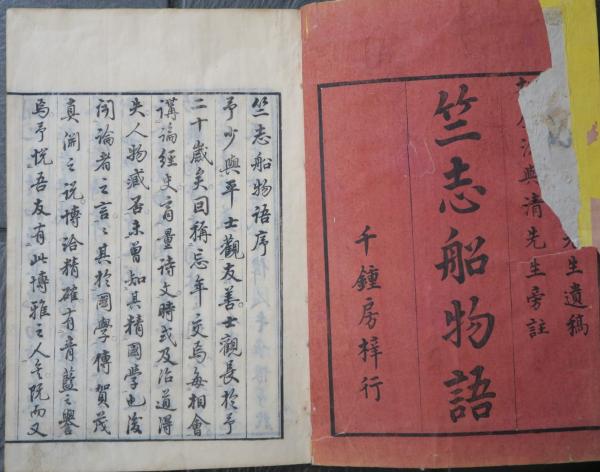 先生遺稿
與清先生旁註
竺志船物語
千鍾房梓行
竺志船物語序
予少與平士觀友善士觀長於予
二十歲矣因稱忘年交焉每相會
講論經史商量詩文時或及治道得
失人物臧否未曾知其精國學也後
論者之言々其於國學傳賀茂
真淵之說博洽精確有青藍之譽
焉予悅吾友有此博雅之人矣既而又